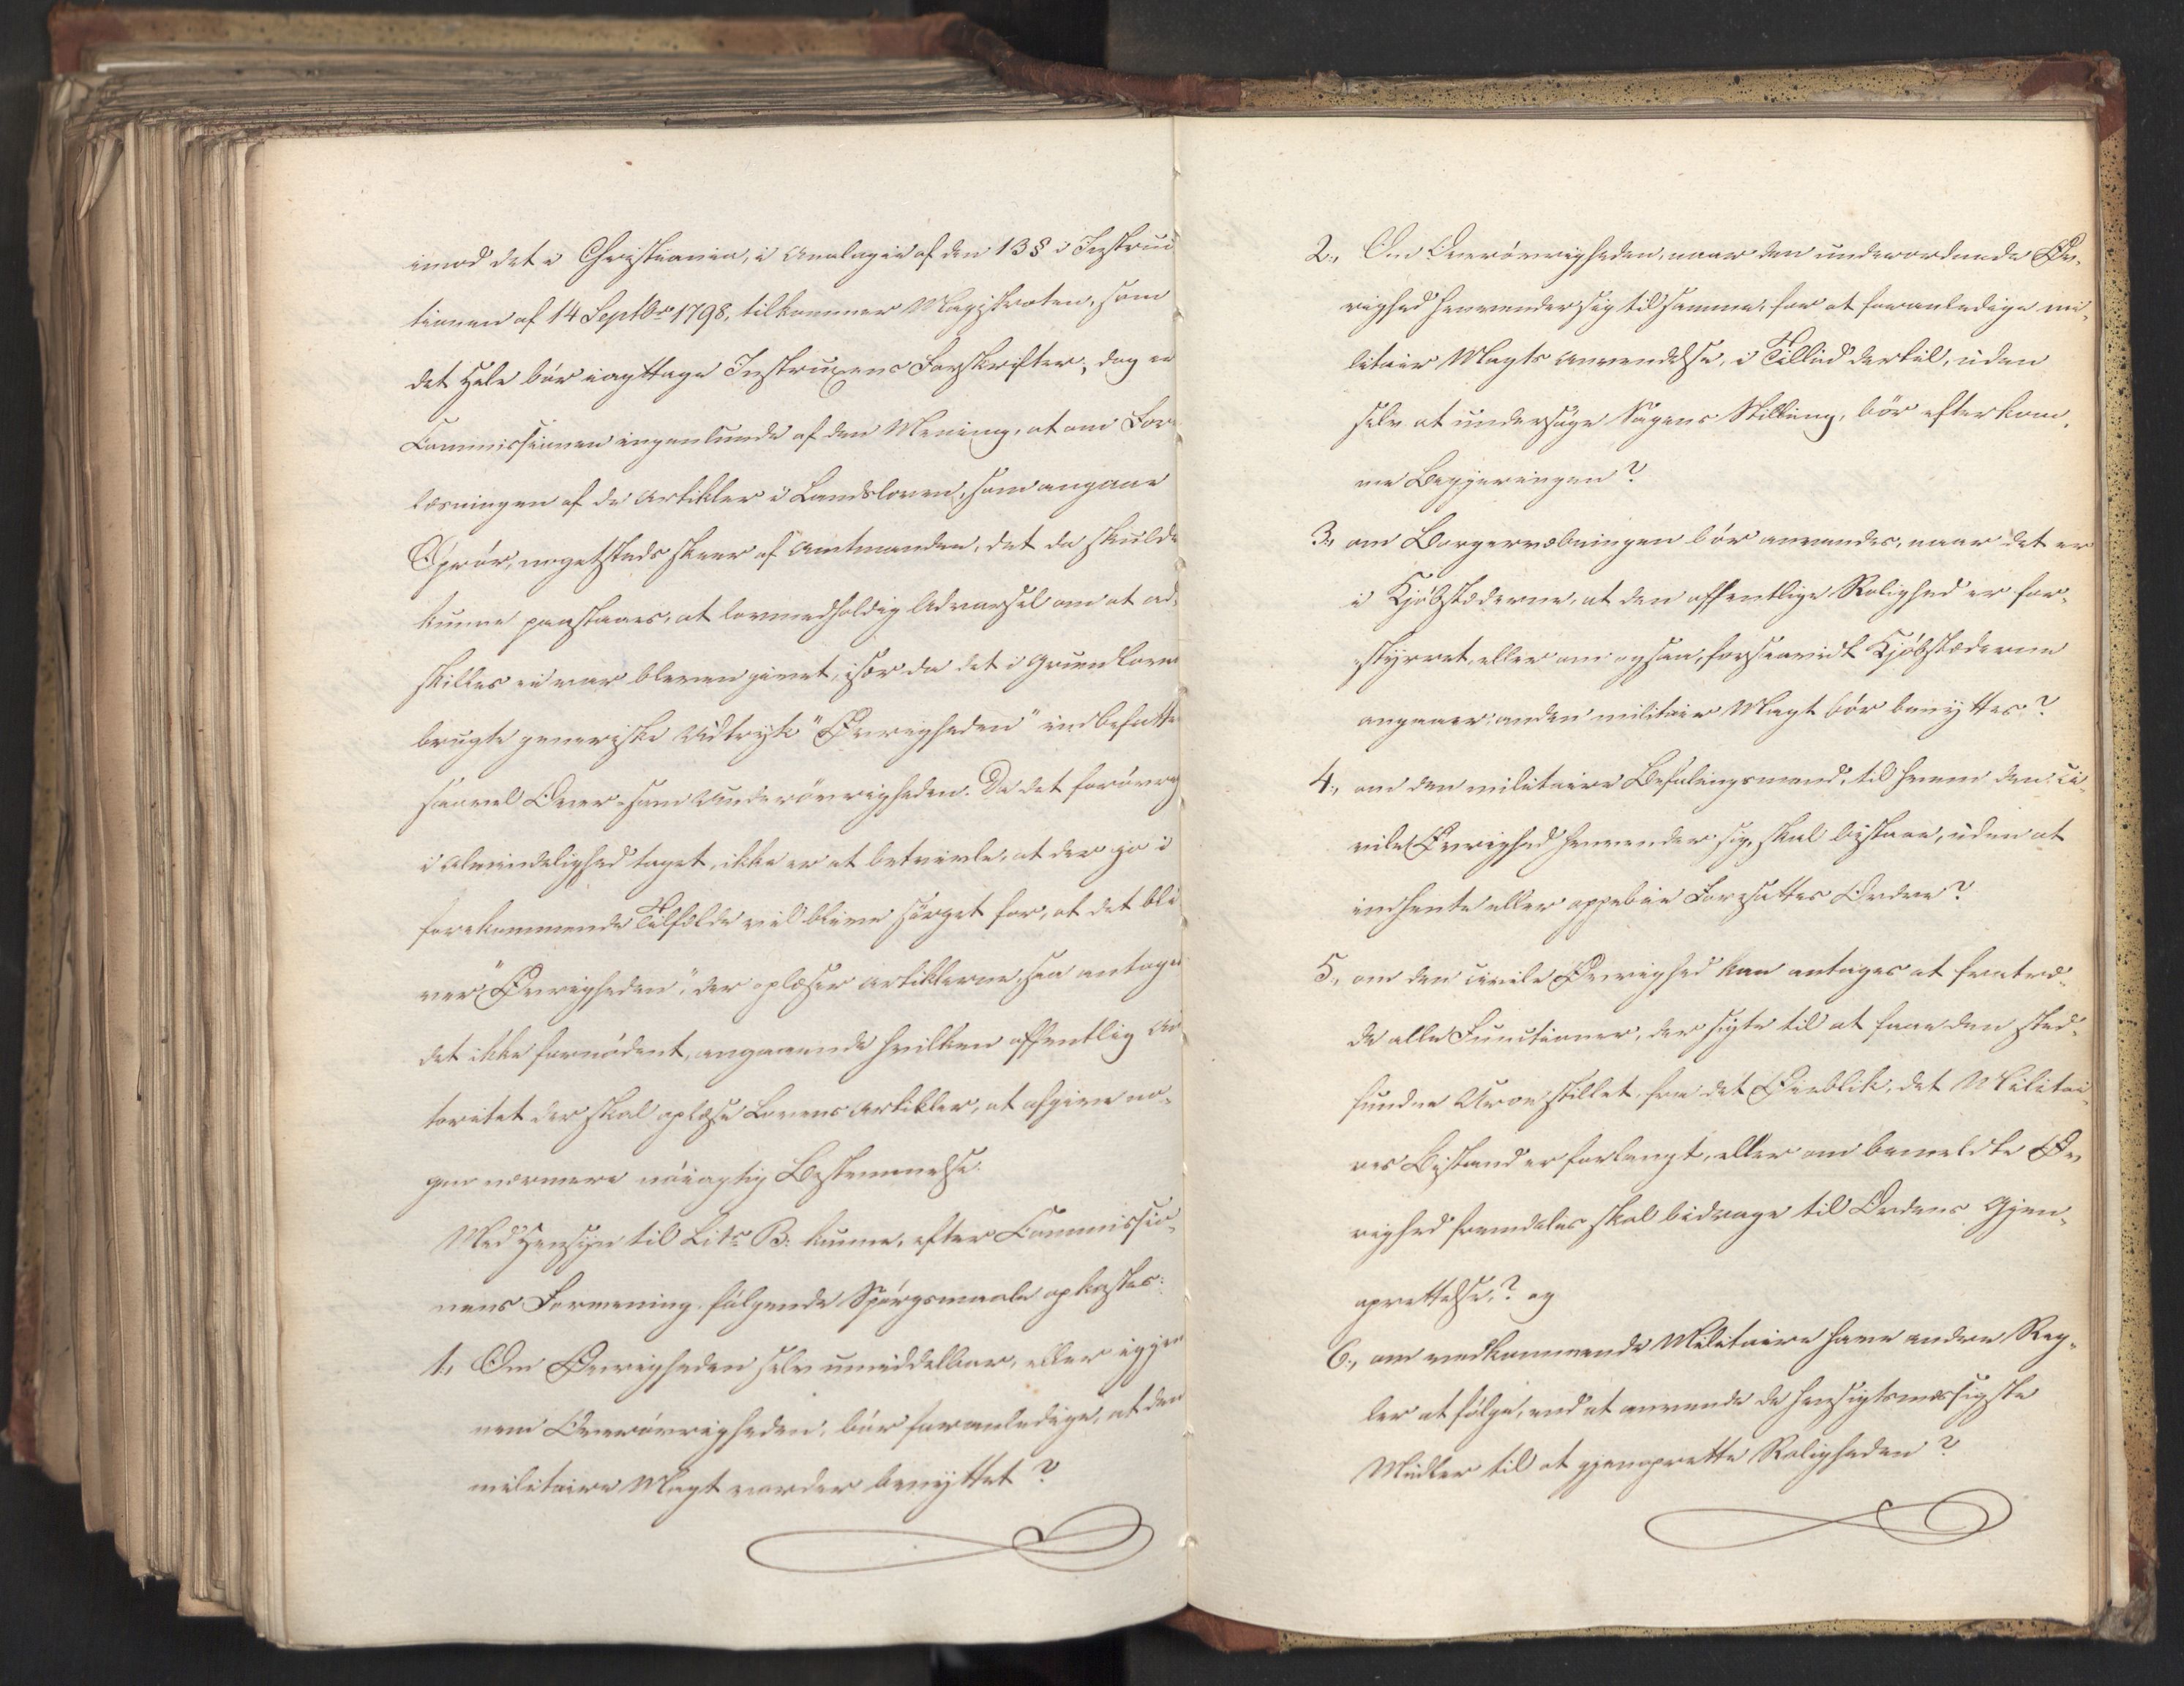 imod det i Christiania, i Analogie af den 13 § i Instruc
tionen af 14 Septbr 1798, tilkommer Magistraten, som
det Hele bör iagttage Instruxens Forskrifter; dog er
Commissionen ingenlunde af den Mening, at om For
læsningen af de Artikler i Landsloven, som angaae
Oprör, nogetsteds skeer af Amtmanden, det da skulde
kunne paastaaes, at lovmedholdig Advarsel om at ad,
skilles ei var bleven givet, især da det i Grundloven
brugte generiske Udtryk "Øvrigheden" indbefatter
saavel Over- som Underövrigheden. Da det foröverig
i Almindelighed taget, ikke er at betvivle, at der jo i
forekommende Tilfælde vil blive sörget for, at det bli
ver "Øvrigheden", der oplæser Artiklerne, saa antages
det ikke fornödent, angaaende hvilken offentlig Au
toritet der skal oplæse Lovens Artikler, at afgive no-
gen nærmere nöiagtig Bestemmelse.
Med Hensyn til Litr. B. kunne, efter Commissio-
nens Formening fölgende Spörgsmaale opkastes:
1., Om Øvrigheden selv umiddelbar, eller igjen
nem Overövrigheden, bör foranledige, at den
militaire Magt vorder benyttet?
2., Om Overövrigheden, naar den underordnede Øv-
righed henvender sig til samme, for at foranledige mi-
litair Magts Anvendelse, i Tillid dertil, uden
selv at undersöge Sagens Stilling, bör efterkom-
me Begjeringen?
3., om Borgervæbningen bör anvendes, naar det er
i Kjöbstæderne, at den offentlige Rolighed er for-
styrret, eller om ogsaa, forsaavidt Kjöbstæderne
angaaer, anden militair Magt bör benyttes?
4., om den militaire Befalingsmand, til hvem den ci-
vile Øvrighed henvender sig, skal bistaae, uden at
indhente eller oppebie Foresattes Ordre?
5., om den civile Øvrighed kan antages at fratræ-
de alle Functioner, der sigte til at faae den sted-
fundne Uroe stillet, fra det Øieblik, det Militai-
res Bistand er forlangt, eller om bemeldte Øv-
righed fremdeles skal bidrage til Ordens Gjen-
oprettelse,? og
6., om vedkommende Militaire have andre Reg-
ler at fölge, end at anvende de hensigtsmæssigste
Midler til at gjenoprette Roligheden?